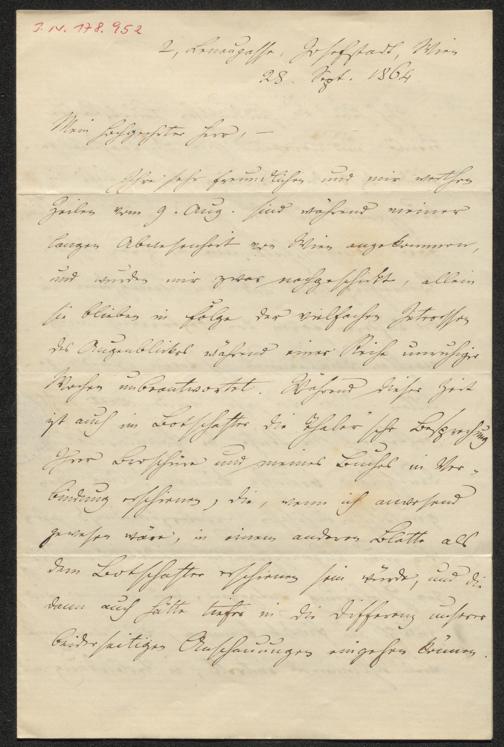 I.N. 178.952
2, Lenaugasse, Josefstadt, Wien
28. Sept. 1864
Mein hochgeehrter Herr, —
Ihre sehr freundlichen und mir werthen
Zeilen vom 9. Aug. sind während meiner
langen Abwesenheit von Wien angekommen,
und wurden mir zwar nachgeschickt, allein
sie blieben in Folge der vielfachen Interessen
des Augenblickes während einer Reihe unruhiger
Wochen unbeantwortet. Während dieser Zeit
ist auch im Botschafter die Thaler'sche Besprechung
Ihrer Broschüre und meines Buches in Ver-
bindung erschienen, die, wenn ich anwesend
gewesen wäre, in einem anderen Blatte als
dem Botschafter erschienen sein würde, und die
dann auch hätte tiefer in die Differenz unserer
beiderseitigen Anschauungen eingehen können.